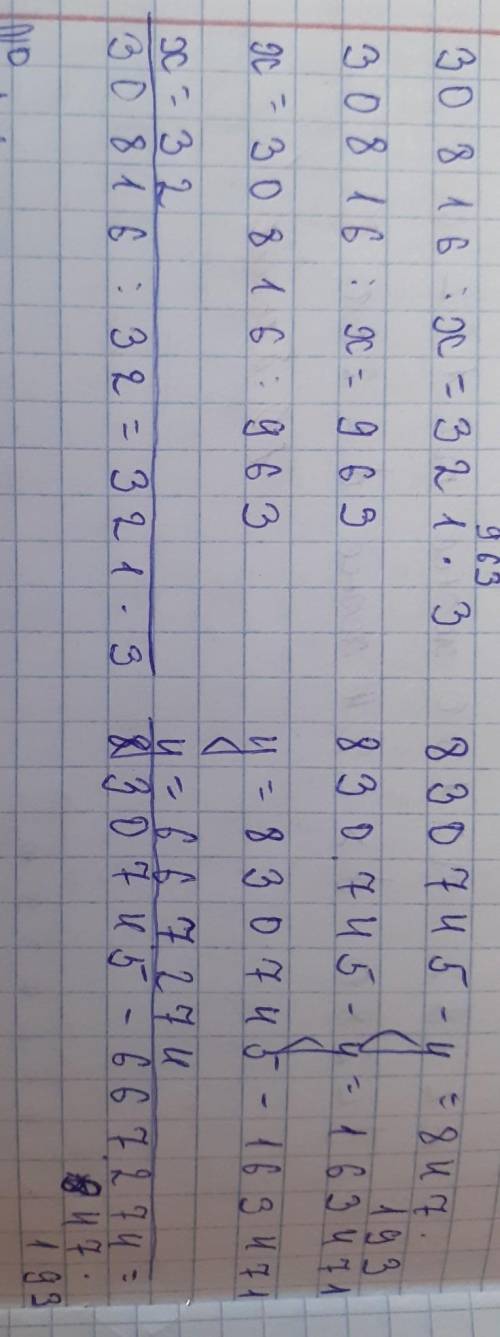 963
30816 : x = 321 · 3
30816 : x = 963
x = 30816 : 963
x = 32
30816 : 32 = 321 · 3
830745 - y = 847 ·
193
830745 - y = 163471
y = 830745 - 163471
y = 667274
830745 - 667274 =
847 ·
193